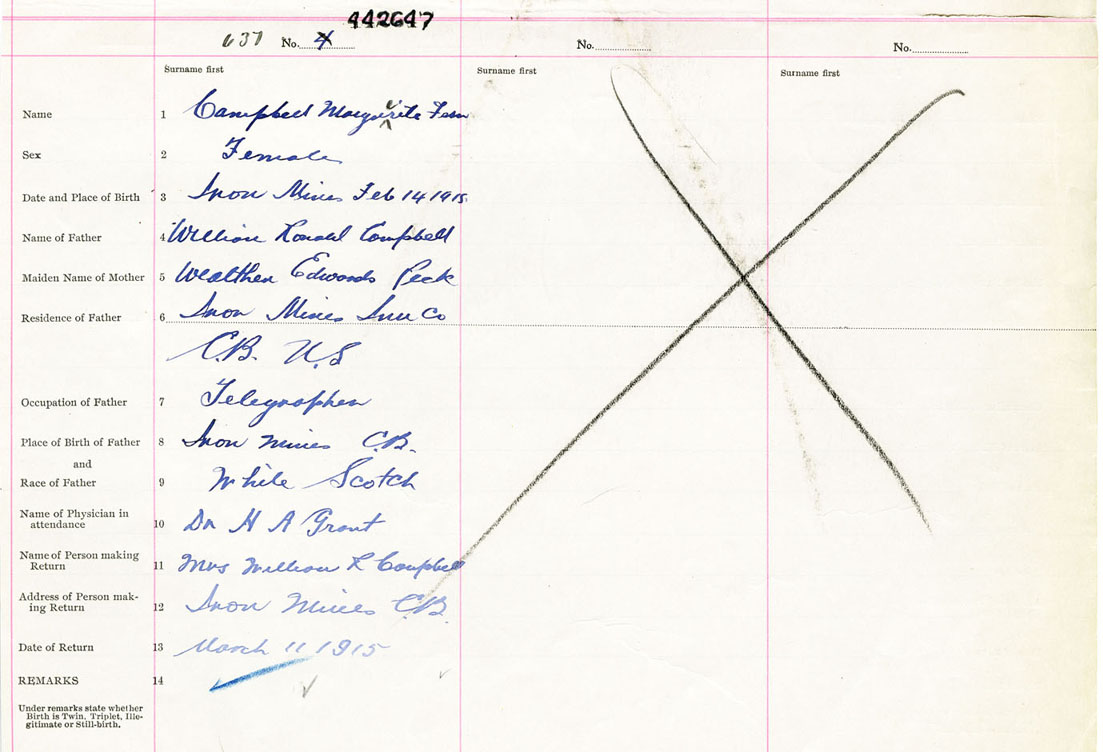 442647
637 No. 4 No. No.
Surname first Surname first Surname first
Name 1 Campbell Marguerite Fern
Sex 2 Female
Date and Place of Birth 3 Iron Mines Feb 14 1915
Name of Father 4 William Ronald Campbell
Maiden Name of Mother 5 Wealthen Edwards Peck
Residence of Father 6 Iron Mines Inv Co
C.B. N.S
Occupation of Father 7 Telegrapher
Place of Birth of Father 8 Iron Mines C.B.
and
Race of Father 9 White Scotch
Name of Physician in
attendance 10 Dr H A Grant
Name of Person making
Return 11 Mrs William R Campbell
Address of Person mak-
ing Return 12 Iron Mines C.B.
Date of Return 13 March 11 1915
REMARKS 14
Under remarks state whether
Birth is Twin, Triplet, Ille-
gitimate or Still-birth.